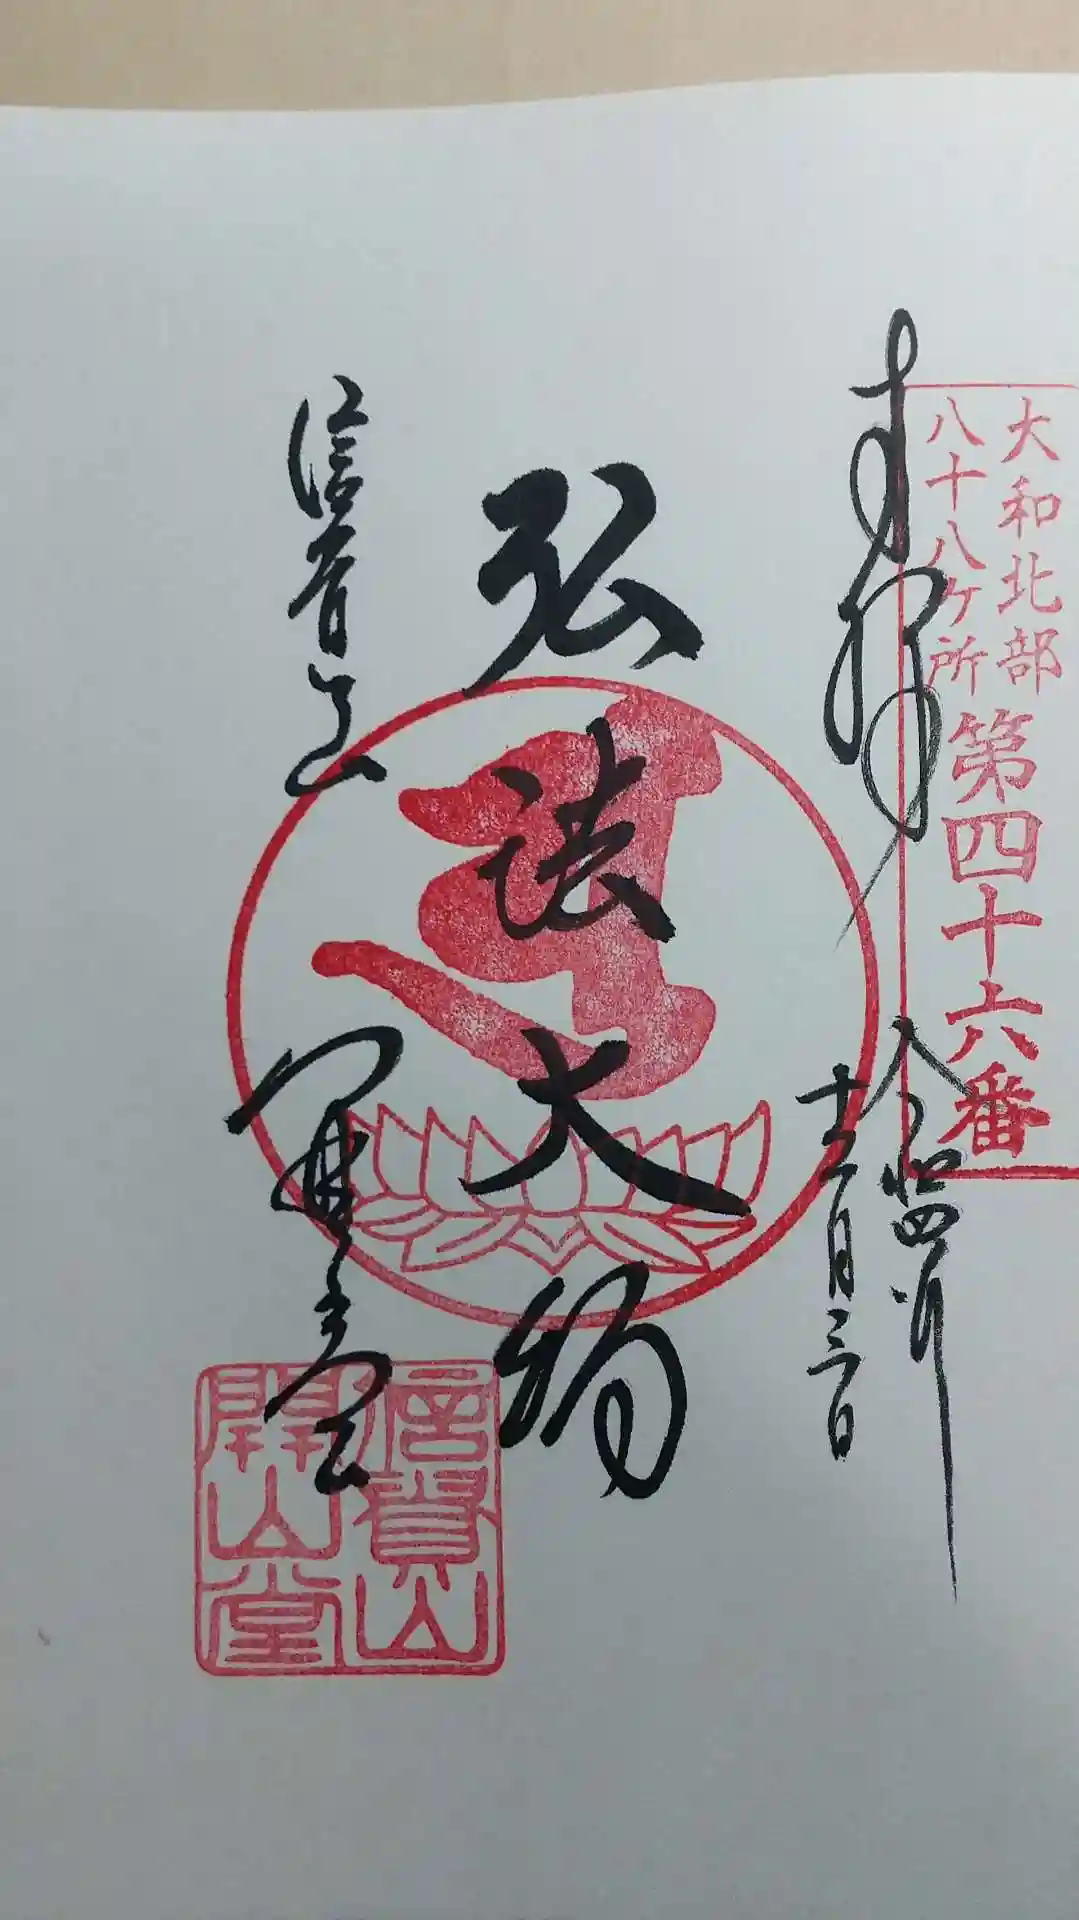 大和北部
八十八ヶ所
第四十六番
奉拝
令和四年
十二月三日
弘法大師
信貴山
開山堂
信貴山
開山堂